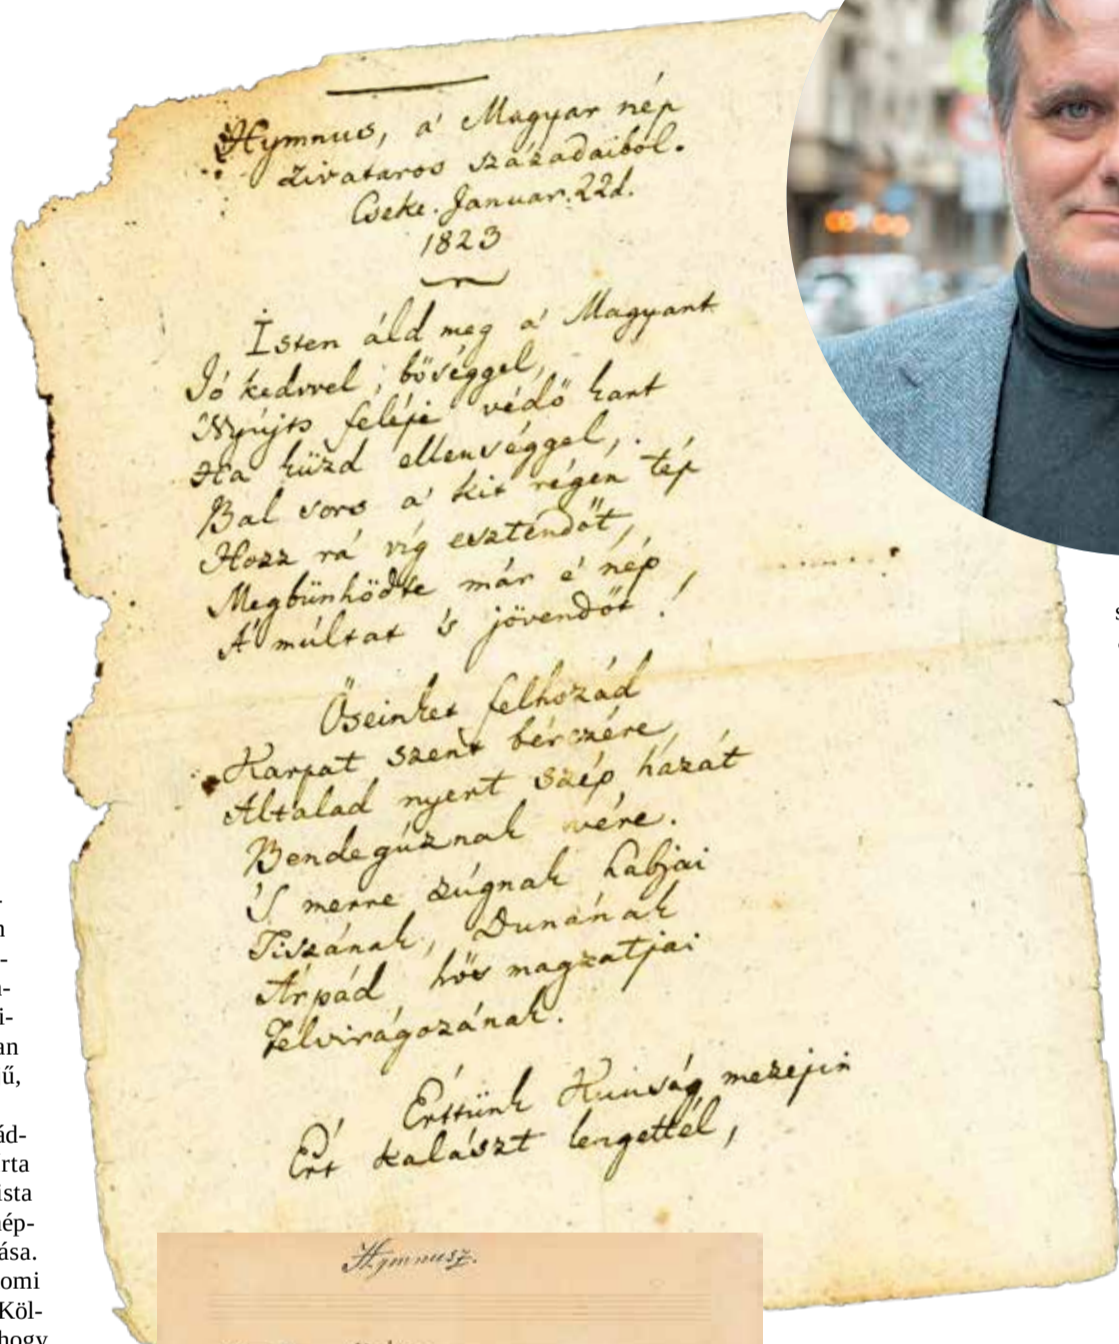 Hymnus, a' Magyar nép
zivataros századaiból.
Cseke. Januar. 22d.
1823
Isten áld meg a' Magyart
Jó kedvvel, bőséggel,
Nyújts feléje védő kart
Ha küzd ellenséggel,
Bal sors a' kit régen tép
Hozz rá víg esztendőt,
Megbünhödte már e' nép
A' múltat 's jövendőt!
Őseinket felhozád
Karpat szent bérczére,
Általad nyert szép hazát
Bendegúznak vére.
'S merre zúgnak habjai
Tiszának, Dunának
Árpád hős magzatjai
Felvirágozának.
Értünk Kunság mezejin
Ért kalászt lengettél,
Hymnusz.
n
-
i-
an
ű,
ád-
rta
ista
ép-
ása.
omi
Köl-
hogy
s